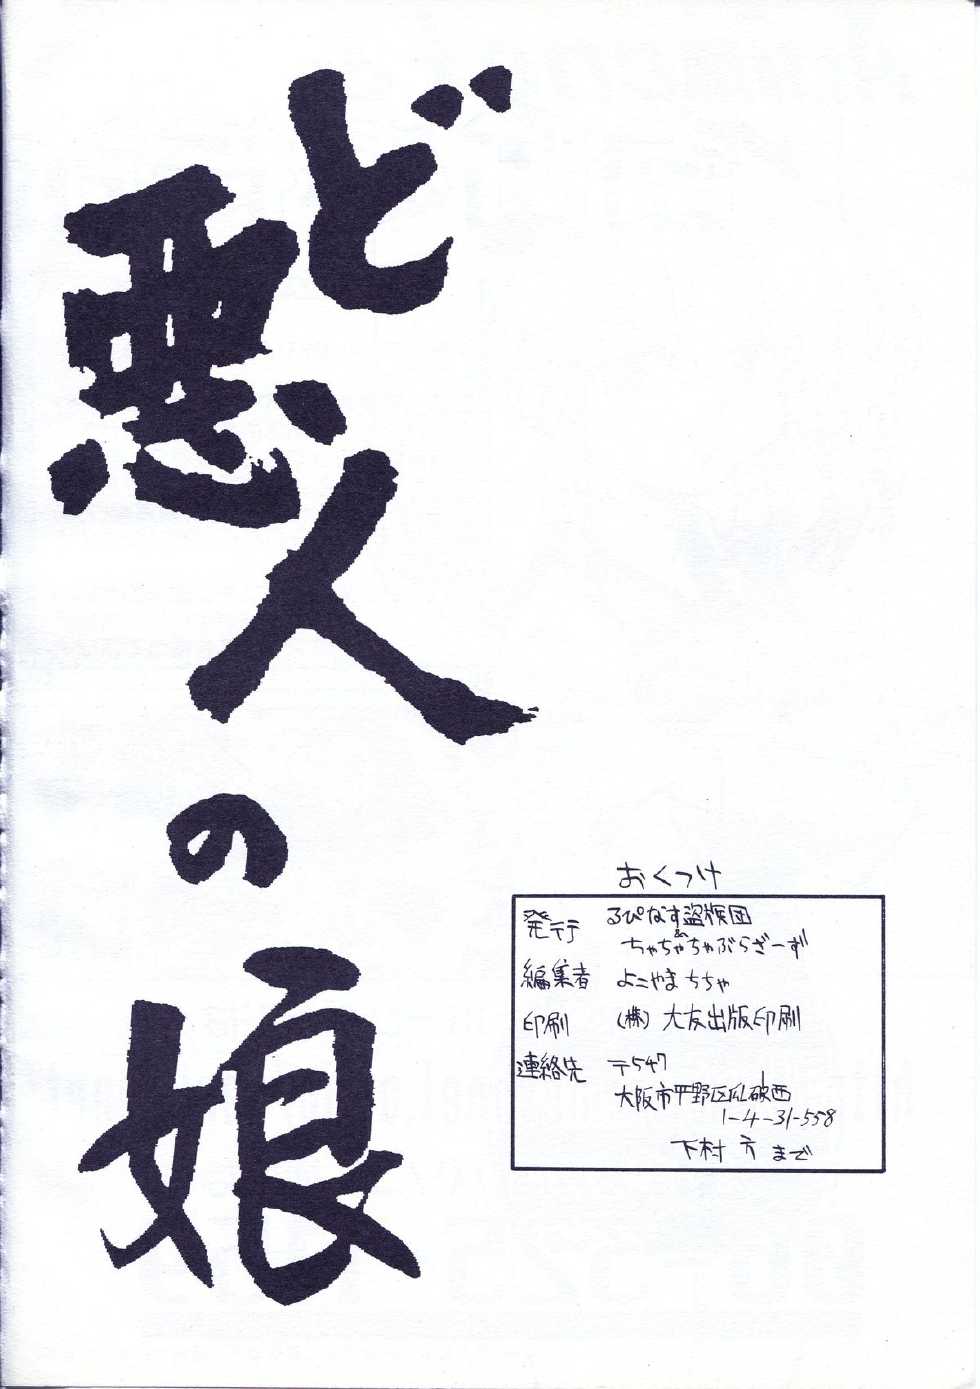 ど
悪
人
の
娘
おくつけ
発行 るぴなす盗賊団
&
ちゃちゃちゃぶらざーず
編集者 よこやまちちゃ
印刷 (株)大友出版印刷
連絡先 〒547
大阪市平野区瓜破西
1-4-31-558
下村方まで